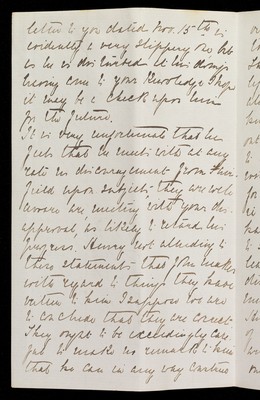 letter to you dated Nov. 15th is
evidently a very slippery one but
as he is his
having come to your knowledge I hope
it may be a check upon him
for the future.
It is very unfortunate that he
feels that he meets with at any
rate no discouragement from
field upon subjects they are well
aware are meeting with your dis-
approval, as likely to retard his
progress. Henry not alluding to
these statements that John makes
with regard to things they have
written to him I suppose we are
to conclude that they are correct.
They ought to be exceedingly care-
ful to make no remark to him
that he can in any way construe